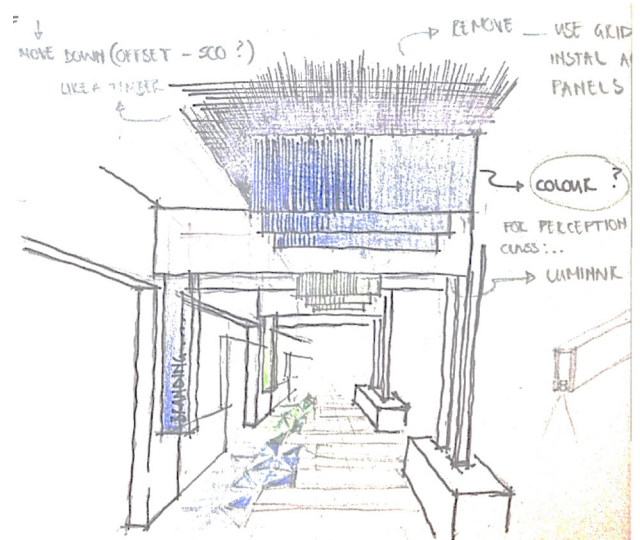 MOVE DOWN (OFFSET - 500 ?)
LIKE A TIMBER
REMOVE — USE GRID
INSTAL A
PANELS
COLOUR ?
FOR PERCEPTION
CLASS:...
LUMINAR
BRANDING